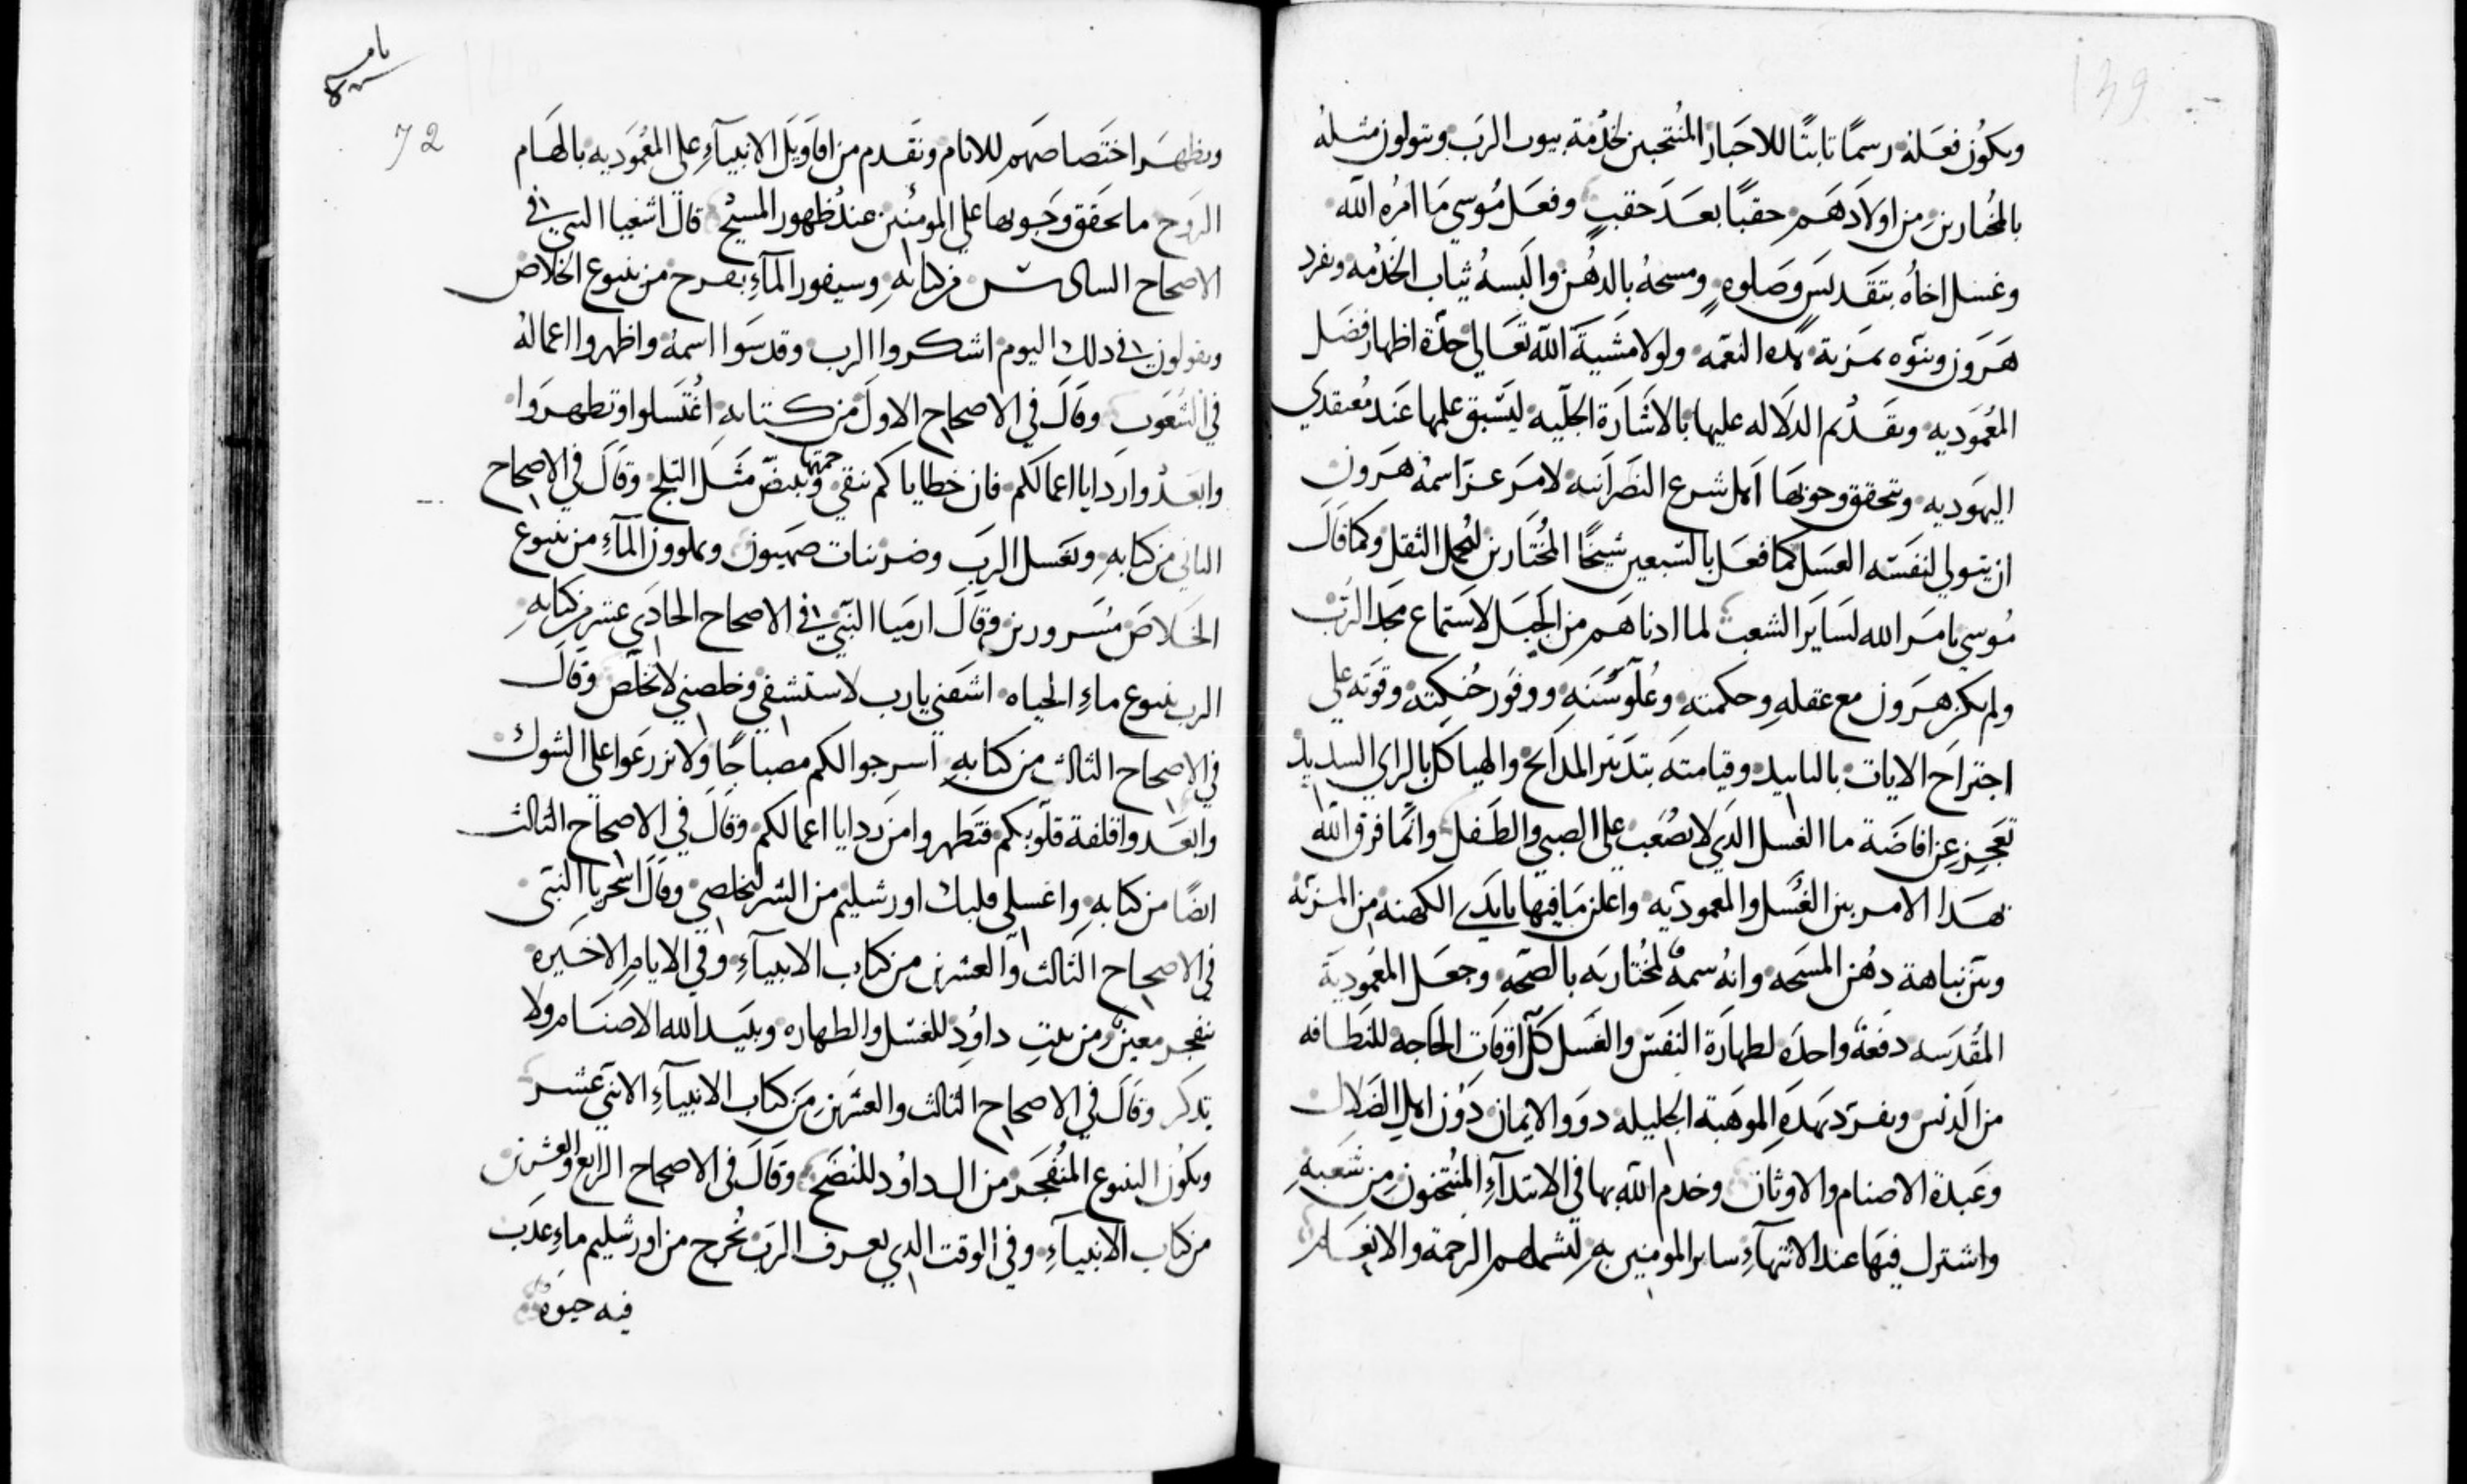 139
ويكون فعله رسمًا ثابتًا للاحبار المنتخبين لخدمة بيوت الرب ويتولون مثله
بالمختارين من اولادهم حقبًا بعد حقبٍ وفعل موسي ما امره الله
وغسل اخاه بتقديس وصلوه ومسحه بالدهن والبسه ثياب الخدمه وتفرد
هرون وبنوه بمزية هذه النعمه ولولا مشية الله تعالي اظهار فضل
المعموديه وتقديم الدلاله عليها بالاشارة الجليه ليسبق علمها عند معتقدي
اليهوديه ويتحقق وجوبها اهل شرع النصرانيه لامر عز اسمه هرون
ان يتولي لنفسه الغسل كما فعل بالسبعين شيخًا المختارين لتحمل الثقل وكما قال
موسي بامر الله لساير الشعب لما ادناهم من الجبل لاستماع مجد الرب
ولم يكن هرون مع عقله وحكمته وعلو سنه ووفور حنكته وقوته علي
اجتراح الايات بالتاييد وقيامته بتدبير المذابح والهياكل بالراي السديد
تعجز عن افاضة ما الغسل الذي لا يصعب علي الصبي والطفل وانما فرق الله
بهذا الامر بين الغسل والمعموديه واعلن ما فيها بايدي الكهنه من المزيه
وبين نباهة دهن المسحه وانه سمه لمختاريه بالصحه وجعل المعموديه
المقدسه دفعة واحده لطهارة النفس والغسل كل اوقات الحاجه للنظافه
من الدنس وتفرد بهذه الموهبة الجليله ذوو الايمان دون اهل الضلال
وعبدة الاصنام والاوثان وخدم الله بها في الابتدآء المنتخبون من شعبه
واشترك فيها عند الانتهآء ساير المومنين به لتشملهم الرحمة والانعام
72
ويظهر اختصاصهم للانام وتقدم من اقاويل الانبيآء علي المعموديه بالهام
الروح ما تحقق وجوبها علي المومنين عند ظهور المسيح قال اشعيا النبي في
الاصحاح السادس من كتابه وسيفور المآء بفرح من ينبوع الخلاص
ويقولون في ذلك اليوم اشكروا الرب وقدسوا اسمه واظهروا اعماله
في الشعوب وقال في الاصحاح الاول من كتابه اغتسلوا وتطهروا
وابعدوا ردايا اعمالكم فان خطاياكم تنقي وتبيض مثل الثلج وقال في الاصحاح
الثاني من كتابه وتغسل الرب وضر بنات صهيون ويملوون المآء من ينبوع
الخلاص مسرورين وقال ارميا النبي في الاصحاح الحادي عشر من كتابه
الرب ينبوع ماء الحياه اشفني يا رب لاستشفي وخلصني لاتخلص وقال
في الاصحاح الثالث من كتابه اسرجوا لكم مصباحًا ولا تزرعوا علي الشوك
وابعدوا قلفة قلوبكم فتطهروا من ردايا اعمالكم وقال في الاصحاح الثالث
ايضًا من كتابه واغسلي قلبك اورشليم من الشر لتخلصي وقال النبي
في الاصحاح الثالث والعشرين من كتاب الانبيآء وفي الايام الاخيره
ينفجر معين من بيت داوُد للغسل والطهاره ويبيد الله الاصنام ولا
تذكر وقال في الاصحاح الثالث والعشرين من كتاب الانبيآء الاثني عشر
ويكون الينبوع المنفجر من ال داوُد للنضح وقال في الاصحاح الرابع والعشرين
من كتاب الانبيآء وفي الوقت الذي يعرف الرب تخرج من اورشليم ماء عذب
فيه حيوه